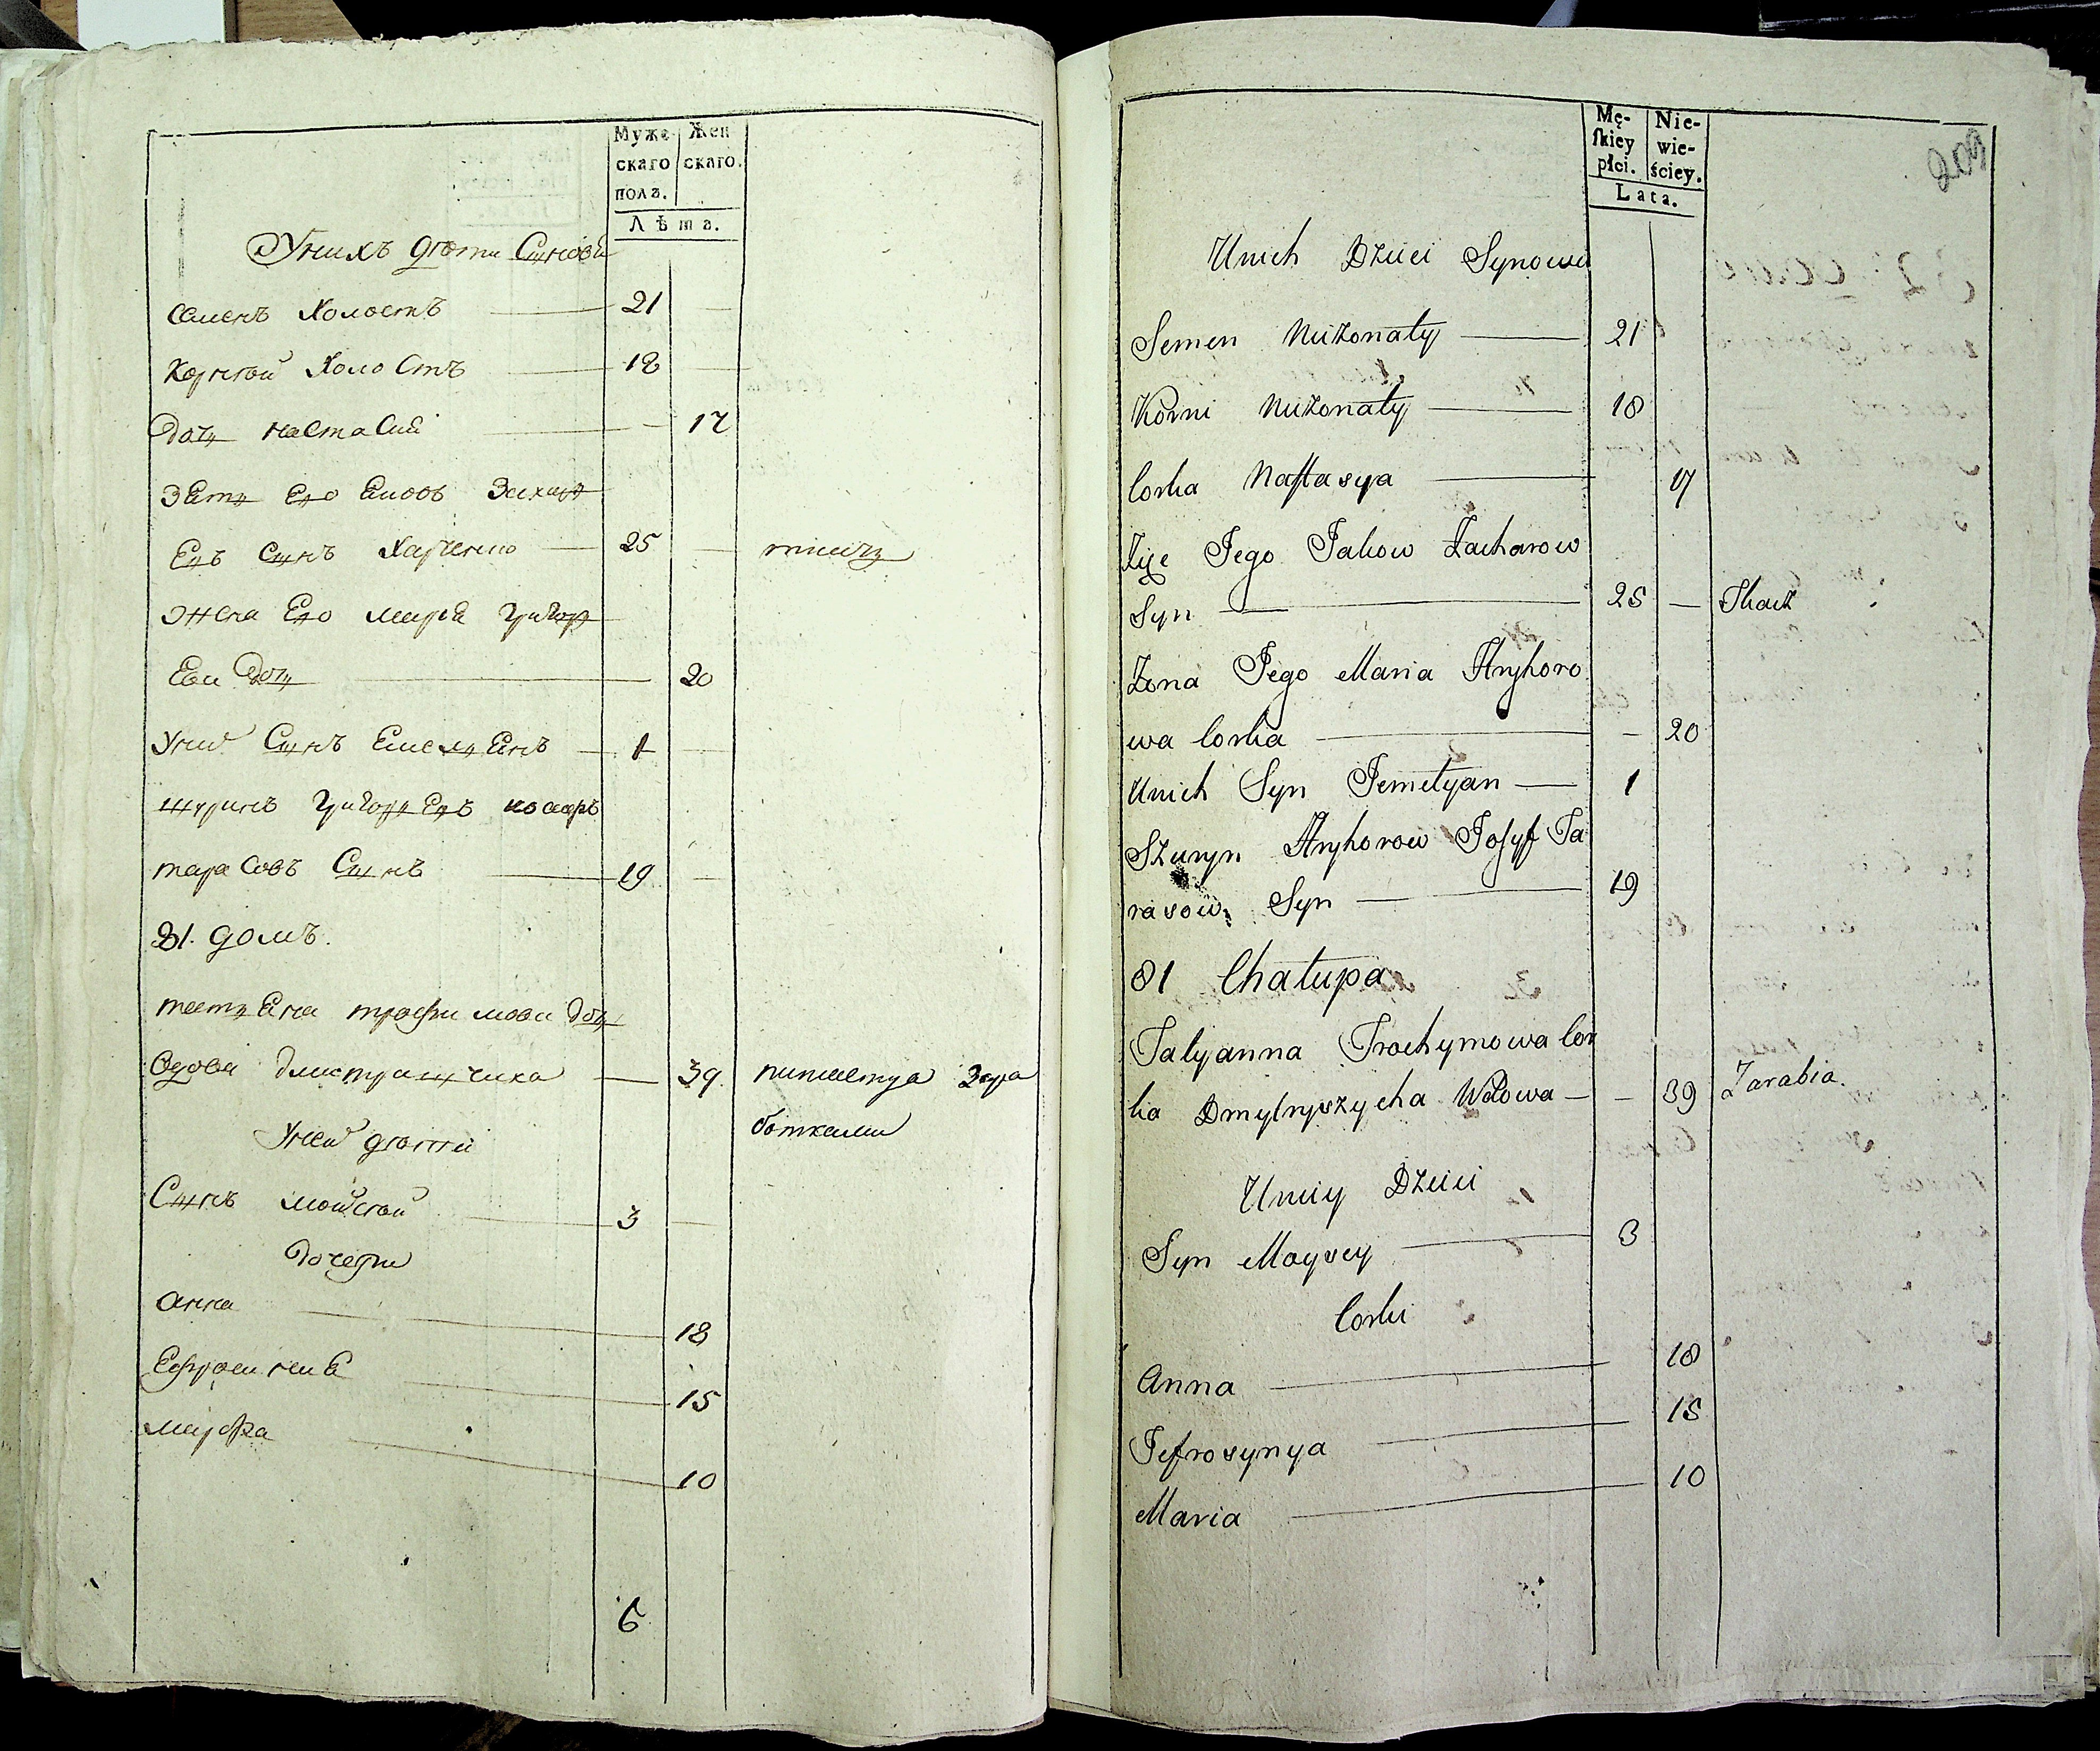 Муже
скаго
полъ.
Жен
скаго.
Лѣта.
Унихъ дѣти Сынови
Семенъ Холостъ 21
Корней Холостъ 18
дочь Настасия 17
зеть его Яковъ Захар
евъ Сынъ Харченко 25 ткачь
жена Его Мария Григор
Ева дочь 20
Унихъ Сынъ Емельянъ 1
шуринъ Григорьевъ
тарасовъ Сынъ 19
81. домъ.
татьяна трофимова дочь
вдова Дмитришиха 39 питается зара
ботками
Уней дѣтей
Сынъ мойсей 3
дочери
Анна 18
Ефросиния 15
марья 10
6
Mę-
skiey
płci.
Nie-
wie-
ściey.
Lata.
Unich Dzieci Synowie
Semen Nieżonaty 21
Korni Nieżonaty 18
Corka Nastasya 17
Jego Jakow Zacharow
Syn 25 — Tkacz
Żona Jego Maria Hryhoro
wa Corka — 20
Unich Syn Jemelyan — 1
Szuryn Hryhorow Josyf Ta
rasow Syn 19
81 Chałupa
Tatyanna Trochymowa Cor
ka Dmytryszycha Wdowa — — 39 Zarabia.
Uniey Dzieci
Syn Moysey 3
Corki
Anna 18
Jefrosynya 15
Maria 10